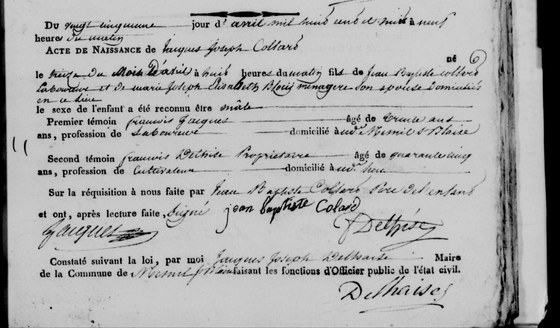 Du vingt cinquieme jour d'avril mil huit cent et huit à neuf
heures du matin
ACTE DE NAISSANCE de Jacques Joseph Collard
né 6
le du Mois d'avril à huit heures du matin fils de Jean Baptiste
Laboureur et de marie Joseph Elisabeth menagere son epouse Domiciliés
en ce lieu
le sexe de l'enfant a été reconnu être male
Premier témoin françois Jacques âgé de trente ans
ans, profession de Laboureur domicilié à
Second témoin françois Proprietaire âgé de quarante cinq
ans, profession de Cultivateur domicilié à
Sur la réquisition à nous faite par Jean Baptiste Collard Pere de l'enfant
et ont, après lecture faite, Signé jean baptiste Colard
Jacques
Constaté suivant la loi, par moi Jacques Joseph Maire
de la Commune de faisant les fonctions d'Officier public de l'état civil.